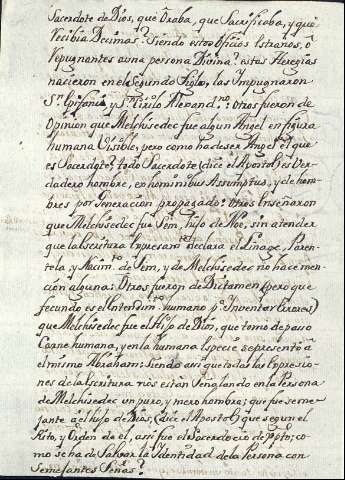 Sacerdote de Dios, que Oraba, que Sacrificaba, y que
recibia Decimas? Siendo estos Oficios estraños, ò
repugnantes a una persona Divina? estas Heregias
nacieron en el segundo siglo, las Impugnaron
Sn. Epifanio, y Sn. Cirilo Alexandno: otros fueron de
Opinion que Melchisedec fue algun Angel en figura
humana Visible, pero como ha de ser Angel el que
es Sacerdote? todo Sacerdote (dice el Apostol) es Ver-
dadero hombre, ex hominibus Assumptus, y de hom-
bres por Generacion propagado: Otros Enseñaron
que Melchisedec fue Sem, hijo de Noe, sin atender
que la Escritura Expresamte. declara el Linage, Paren-
tela, y Nacimto. de Sem, y de Melchisedec no hace men-
ción alguna: Otros fueron de Dictamen (pero que
fecundo es el Entendimto. humano pa. Inventar Errores)
que Melchisedec fue el Hijo de Dios, que tomò de paso
Carne humana, y en la humana Especie se presentò à
el mismo Abraham; Siendo asi que todas las Expresio-
nes de la Escritura nos estan Señalando en la Persona
de Melchisedec un puro, y mero hombre; que fue seme-
jante a el hijo de Dios, (dice el Apostol) que segun el
Rito, y Orden de el, asi fue el Sacerdocio de Xpto; co-
mo se ha de Salvar la Identidad de la Persona con
Semejantes Señas?